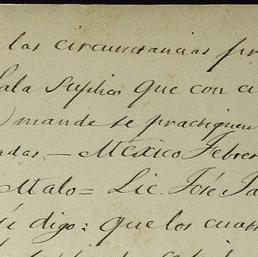 las circunstancias pr
Sala Suplico que con cu
mande se practiquen
adas. — México Febrer
Malo = Lic. José
digo: que los cuatr